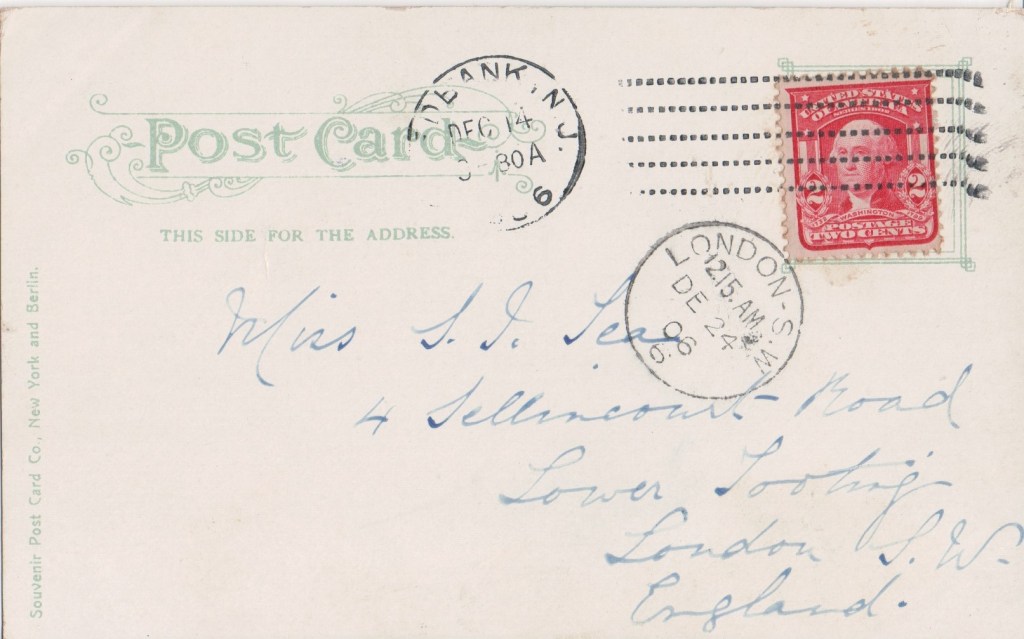 Post Card
THIS SIDE FOR THE ADDRESS.
DEC 14
30 A
N.J.
6
UNITED STATES
OF AMERICA
SERIES 1902
2 2
WASHINGTON
POSTAGE
TWO CENTS
LONDON-S.W.
12.15.AM
DE 24
06
6.
Miss S. J.
4 Sellincourt Road
Lower Tooting
London S.W.
England.
Souvenir Post Card Co., New York and Berlin.